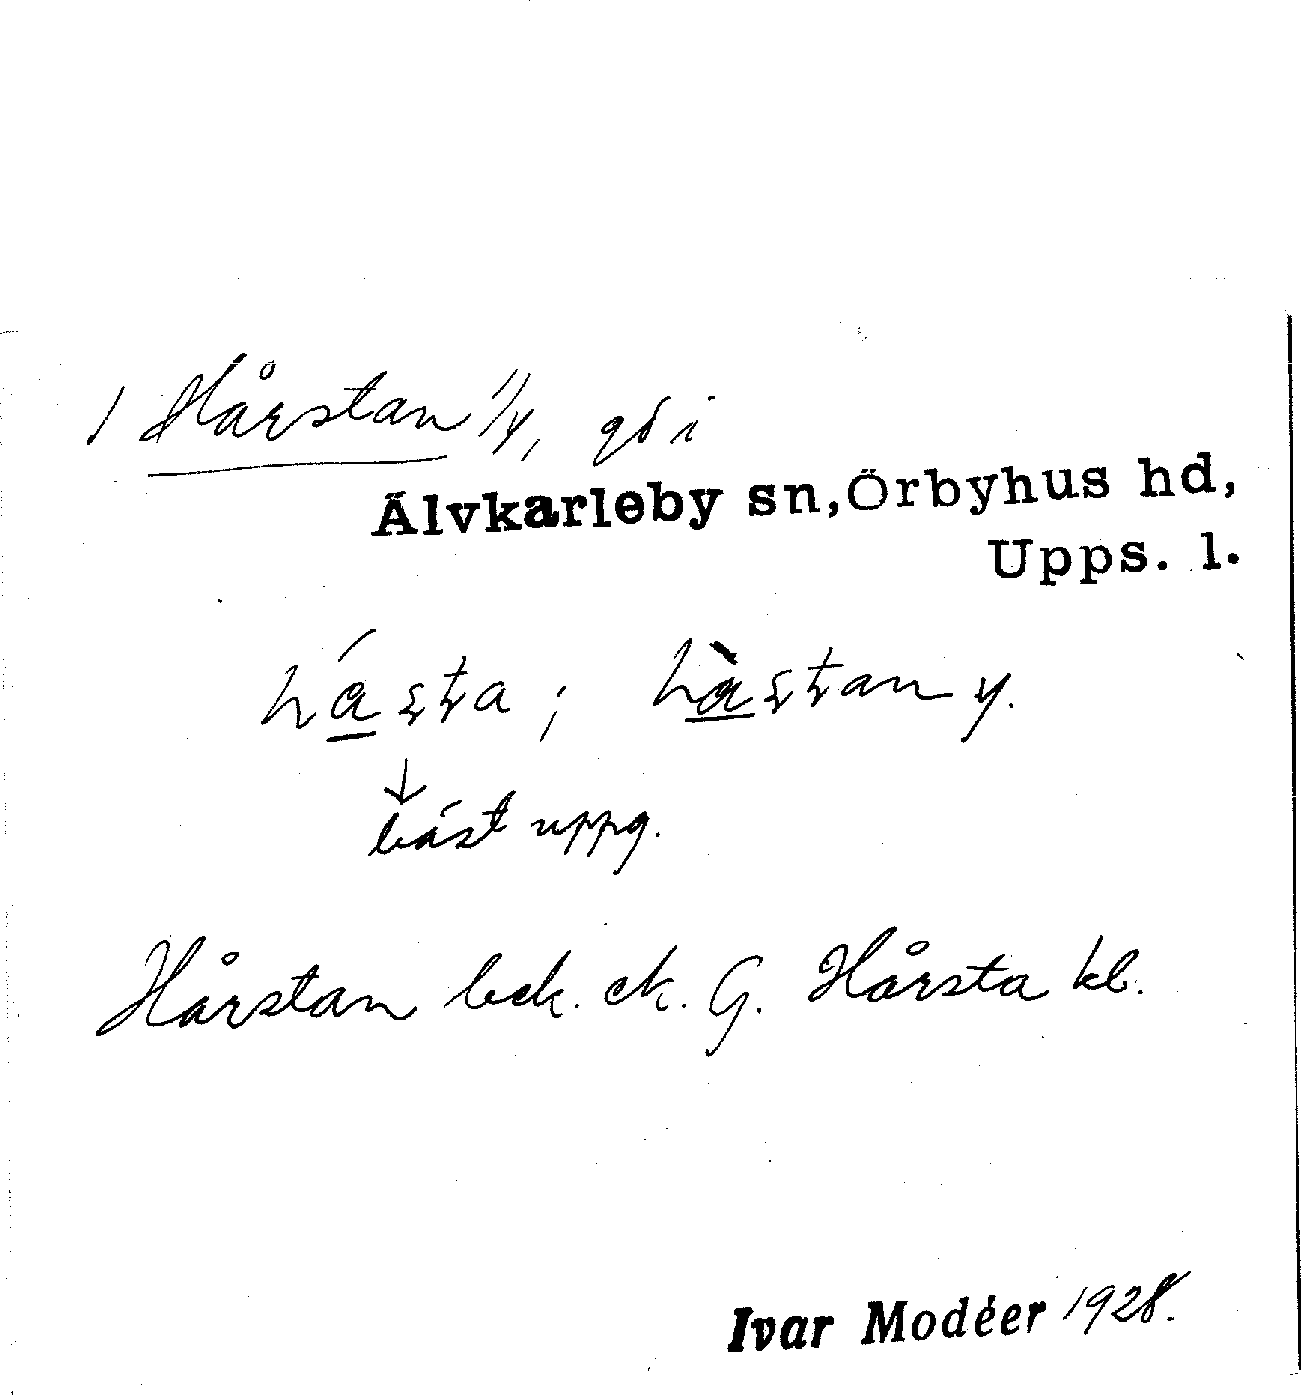 1 Hårstan 1/4, gd i
Älvkarleby sn, Örbyhus hd,
Upps. l.
hása̲ta; hàstan y.
↓
bäst uppg.
Hårstan bek. ek. G. Hårsta kb.
Ivar Modéer 1928.